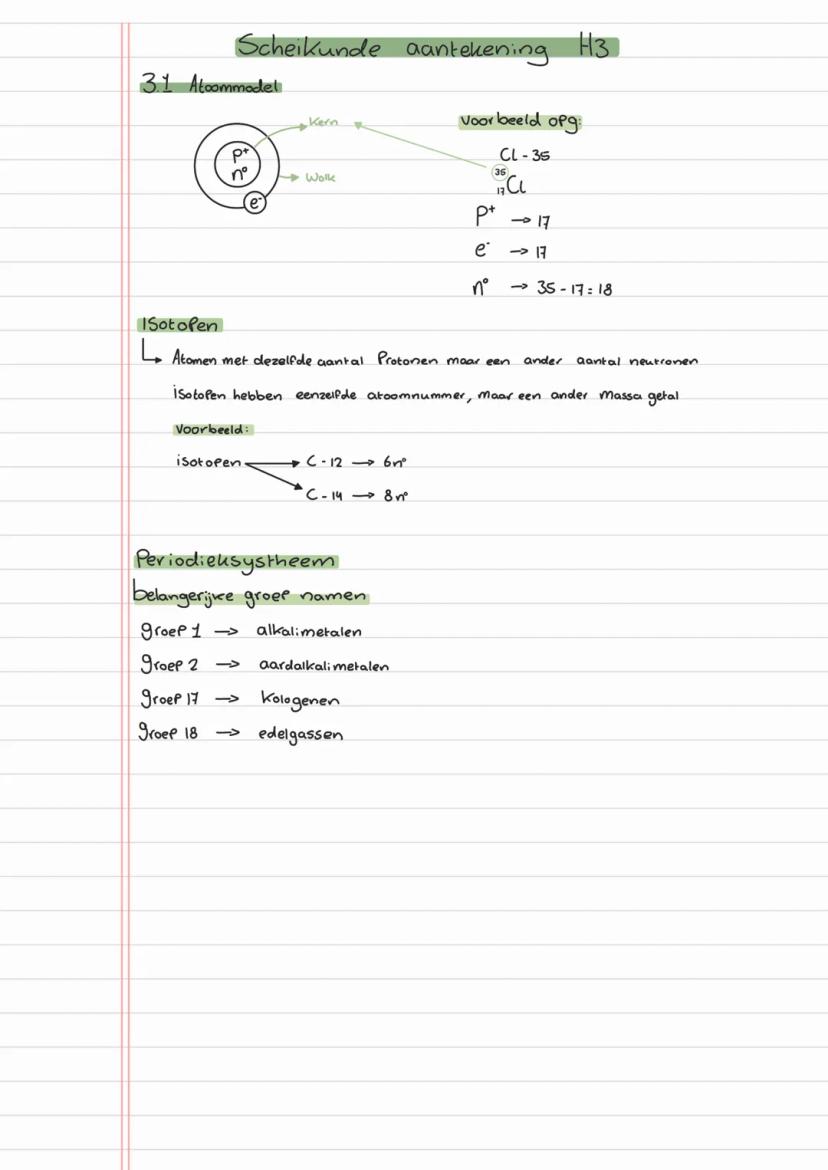 Scheikunde aantekening H3
3.1 Atoommodel
Kern
P⁺
n⁰
Wolk
e⁻
Voorbeeld opg:
Cl - 35
35
17 Cl
P⁺ → 17
e⁻ → 17
n⁰ → 35 - 17 = 18
Isotopen
↳ Atomen met dezelfde aantal Protonen maar een ander aantal neutronen
isotopen hebben eenzelfde atoomnummer, maar een ander Massa getal
Voorbeeld:
isotopen → C - 12 → 6n⁰
→ C - 14 → 8n⁰
Periodieksystheem
belangerijke groep namen
groep 1 → alkalimetalen
groep 2 → aardalkalimetalen
groep 17 → Kologenen
groep 18 → edelgassen